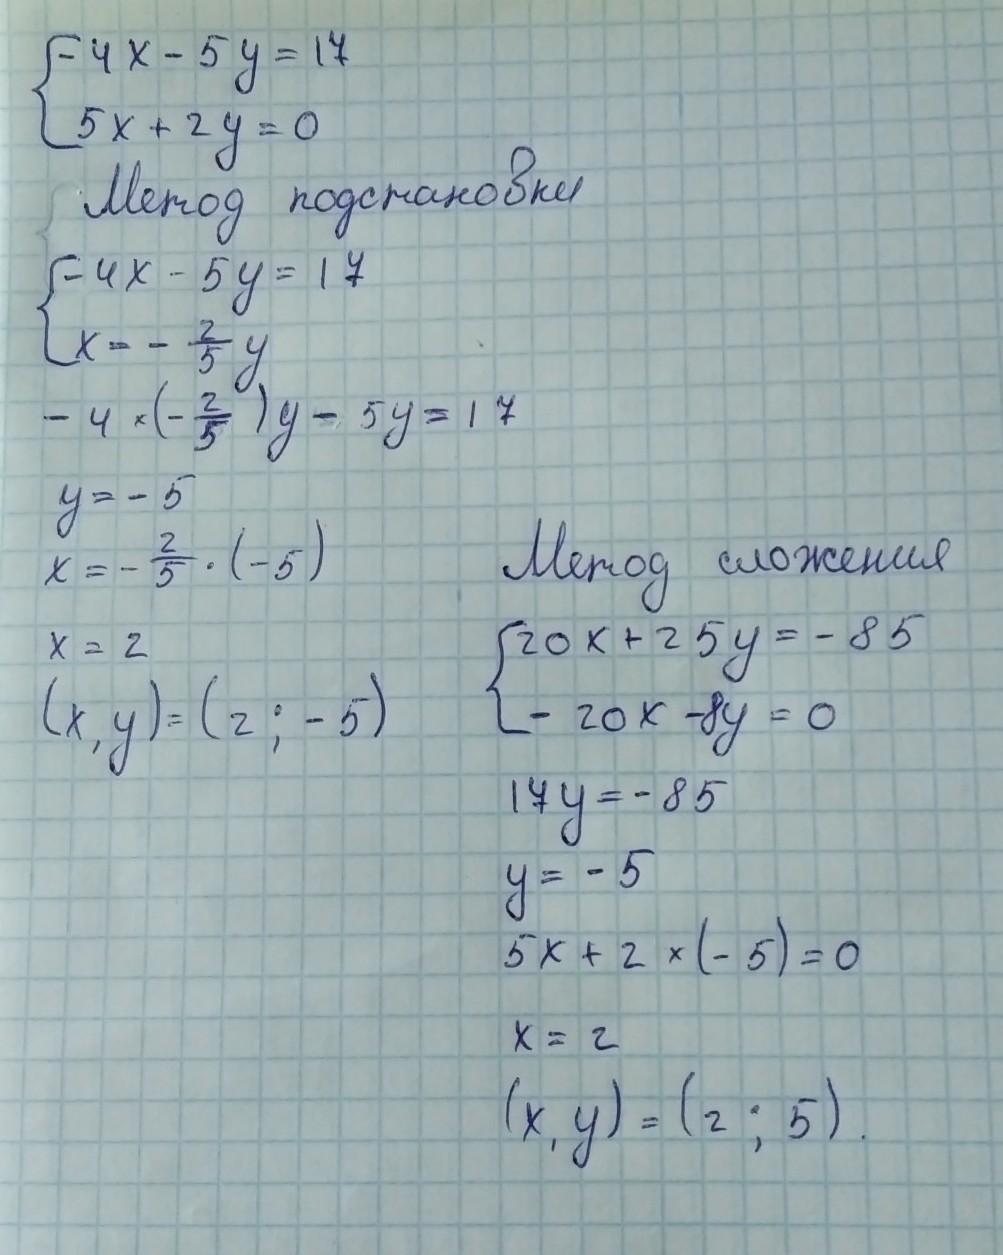 -4x - 5y = 17
5x + 2y = 0
Метод подстановки
-4x - 5y = 17
x = - 2/5 y
-4 × (-2/5)y - 5y = 17
y = -5
x = - 2/5 · (-5)
x = 2
(x, y) = (2 ; -5)
Метод сложения
20x + 25y = -85
-20x - 8y = 0
17y = -85
y = -5
5x + 2 × (-5) = 0
x = 2
(x, y) = (2 ; 5).